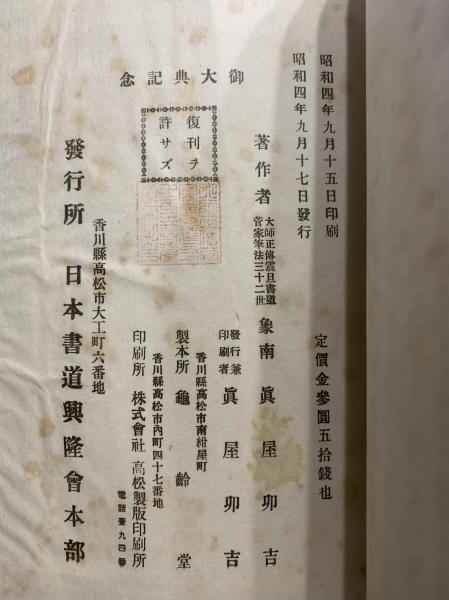 昭和四年九月十五日印刷
昭和四年九月十七日發行
定價金參圓五拾錢也
御大典記念
復刊ヲ
許サズ
著作者
大師正傳震旦書道
菅家筆法三十二世
象南眞屋卯吉
發行兼
印刷者
眞屋卯吉
香川縣高松市南紺屋町
製本所 龜齡堂
香川縣高松市內町四十七番地
印刷所 株式會社 高松製版印刷所
電話壹九四番
香川縣高松市大工町六番地
發行所 日本書道興隆會本部